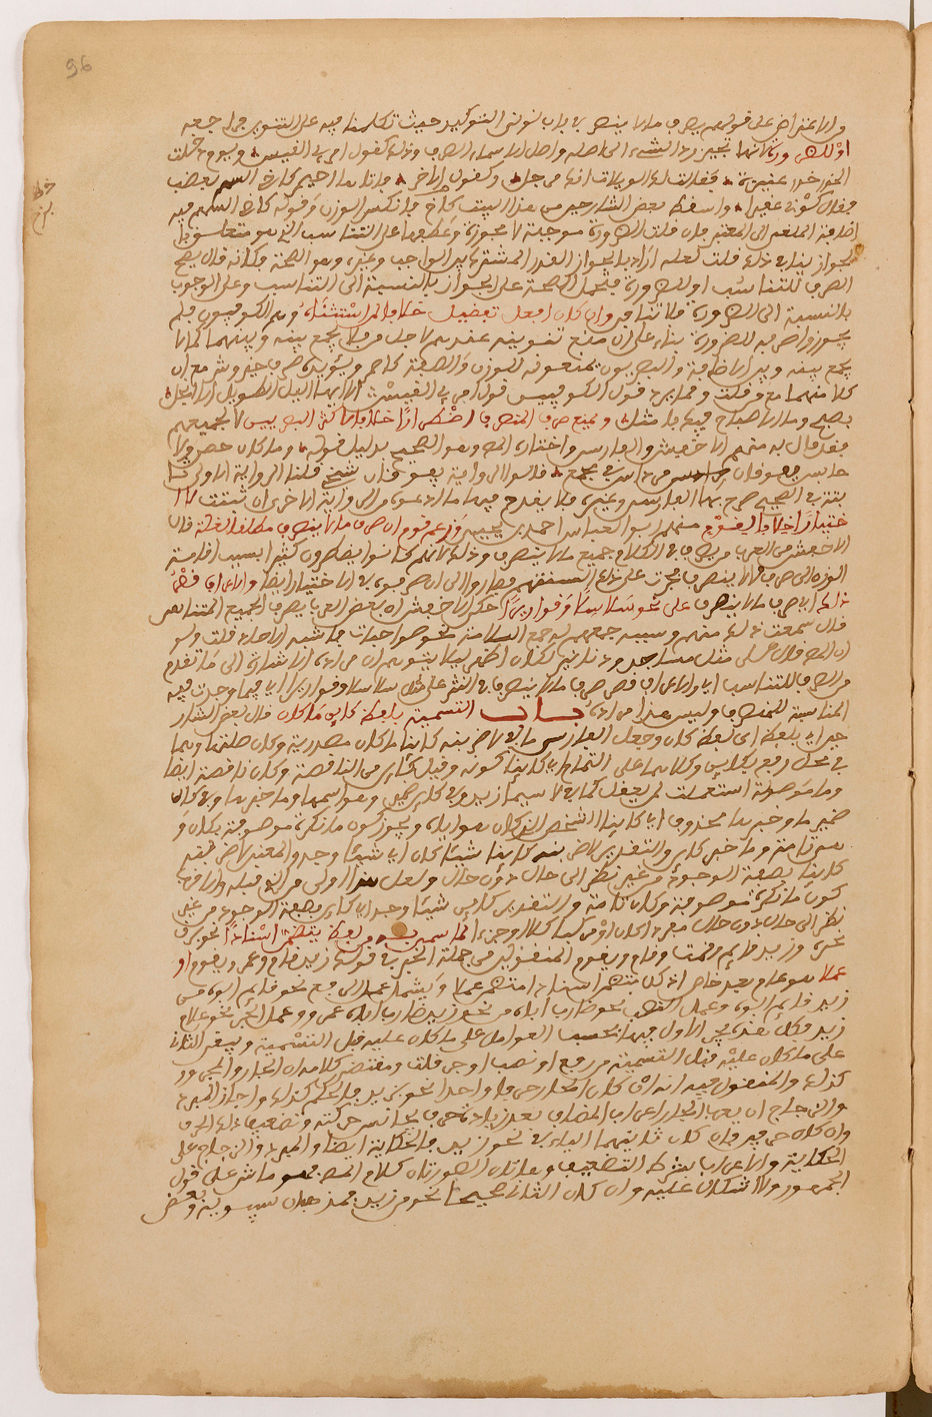 96
والاعتراض على قولهم يصرف ما لا ينصرف في باب نونى التوكيد حيث تكلمنا فيه على التنوين فراجعه
او للضرورة لانها تجيز رد الشيء الى اصله واصل الاسماء الصرف وذلك كقول امرئ القيس ويوم دخلت
الخدر خدر عنيزة فقالت لك الويلات انك مرجلي وكقول الاخر فاتاها احيمر كاخى السهم بعضب
فقال كونى عقيرا واسقط بعض الشارحين من هذا البيت كاخى فانكسر الوزن وقوله كاخى السهم فيه
اضافة الملغى الى المعتبر فان قلت الضرورة موجبة لا مجوزة وعطفها على التناسب الذي هو متعلق
بجواز ينافي ذلك قلت لعله اراد بالجواز القدر المشترك بين الواجب وغيره وهو الصحة فكانه قال يصح
الصرف للتناسب او للضرورة فتحمل الصحة على الجواز بالنسبة الى التناسب وعلى الوجوب
بالنسبة الى الضرورة فلا تنافر وان كان افعل تفضيل خلافا لمن استثناه وهم الكوفيون فلم
يجوزوا صرفه للضرورة بناء على ان منع تنوينه عندهم لاجل من فلا يجمع بينه وبينها كما لا
يجمع بينه وبين الاضافة والبصريون يمنعونه للوزن والصفة كاحمر ويؤيده صرف خير وشر مع ان
كلا منهما مع من قلت ومما يرد قول الكوفيين قول امرئ القيس الا ايها الليل الطويل الا انجل
بصبح وما الاصباح فيك بامثل ويمنع صرف المنصرف اضطرارا خلافا لاكثر البصريين لا لجميعهم
فقد قال به منهم الاخفش والفارسي واختاره المص وهو الصحيح بدليل قوله وما كان حصن ولا
حابس يفوقان مرداس في مجمع قالوا الرواية يفوقان شيخى قلنا الرواية الاولى ثا
بتة في الصحيح صرح بها الفارسي وغيره فلا يقدح فيها ما ادعوه من الرواية الاخرى ان ثبتت لا ا
ختيارا خلافا لقوم منهم ابو العباس احمد بن يحيى وزعم قوم ان صرف ما لا ينصرف مطلقا لغة قال
الاخفش من العرب من يصرف في الكلام جميع ما لا ينصرف وذلك لانهم كانوا يضطرون كثيرا بسبب اقامة
الوزن الى صرف ما لا ينصرف فجرت على ذلك السنتهم فصاروا الى ان صرفوه في الاختيار ايضا والاعرف قصر
ذلك اي صرف ما لا ينصرف على نحو سلاسلا وقواريرا حكى الاخفش ان بعض العرب يصرف الجميع المتناهى
قال سمعت ذلك منهم وسببه جمعهم له جمع السلامة نحو صواحبات فاشبه الاحاد قلت ولو
ان المص قال على مثل مساجد ودنانير لكان اظهر ليلا يتوهم ان مراده الاشارة الى ما تقدم
من الصرف للتناسب اي والاعرف قصر صرف ما لا ينصرف في النثر على مثل سلاسلا وقواريرا اي فيما وجدت فيه
المناسبة للمنصرف وليس هذا مراده باب التسمية بلفظ كاين ما كان قال بعض الشار
حين اي بلفظ اي لفظ كان وجعل الفارسي ما في لاضربنه كاينا ما كان مصدرية وكان صلتها وهما
في محل رفع بكاين وكلاهما على التمام اي كاينا كونه وقيل كاين من الناقصة وكان ناقصة ايضا
وما موصولة استعملت لمن يعقل كما في لا سيما زيد وفي كاين ضمير وهو اسمها وما خبرها وفي كان
ضمير ما وخبرها محذوف اي كاينا الشخص الذي كان هو اياه ويجوز كون ما نكرة موصوفة بكان و
هي تامة وما خبر كاين والتقدير لاضربنه كاينا شيئا كان اي شيئا وجد والمعنى لاضربنه
كاينا بصفة الوجود من غير نظر الى حال دون حال ولعل هذا اولى من الذي قبله والاولى
كون ما نكرة موصوفة وكان تامة والتقدير كاين شيئا وجد اي كاين بصفة الوجود من غير
نظر الى حال دون حال مفردا كان او مركبا كلا او جزءا لما سمى به ولفظ يتضمن اسنادا نحو برق
نحره وزيد قايم وقمت وقام ويقوم المنقولين من جملة الخبر في قولك زيد قام وعمرو يقوم او
عملا هو عام بعد خاص اذ كل متضمن اسنادا متضمن عملا ويشمل عمل الرفع نحو قايم ابوه من
زيد قايم ابوه وعمل النصب نحو ضارب اباه من نحو زيد ضارب اباه عمرو وعمل الجر نحو غلام
زيد فكل هذه يجري الاول فيها بحسب العوامل على ما كان عليه قبل التسمية ويبقى الثانى
على ما كان عليه قبل التسمية من رفع او نصب او جر قلت ومقتضى كلامه ان الجار والمجرور
كذلك والمنقول فيه انه ان كان الجار حرفا واحدا نحو بزيد فالحكم كذلك واجاز المبرد
والزجاج ان يعرب الجار اعراب المضاف بعد زيادة حرف يجانس حركته وتضعيف ذلك الحرف
وان كان حرفين فان كان ثانيهما لينا نحو في زيد فالحكاية ايضا والمبرد والزجاج على
الحكاية والاعراب بشرط التضعيف وهاتان الصورتان كلام المص فيهما ماش على قول
الجمهور ولا اشكال عليه وان كان الثانى صحيحا نحو من زيد فمذهبان سيبويه وبعض